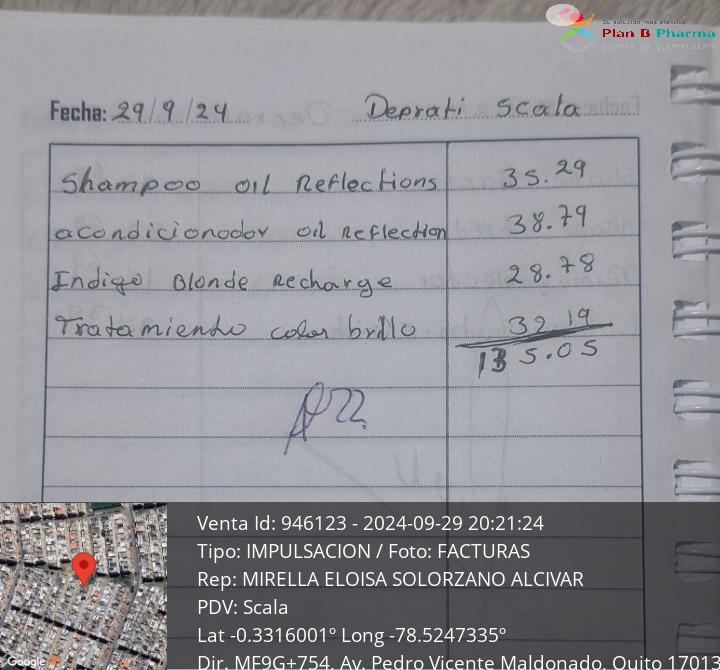 Su solución más efectiva!
Plan B Pharma
Fecha: 29/9/24 Deprati Scala
Shampoo oil Reflections 35.29
acondicionador oil Reflection 38.79
Indigo Blonde Recharge 28.78
Tratamiento color brillo 32 19
135.05
Venta Id: 946123 - 2024-09-29 20:21:24
Tipo: IMPULSACION / Foto: FACTURAS
Rep: MIRELLA ELOISA SOLORZANO ALCIVAR
PDV: Scala
Lat -0.3316001º Long -78.5247335º
Dir. MF9G+754, Av. Pedro Vicente Maldonado, Quito 17013
Google